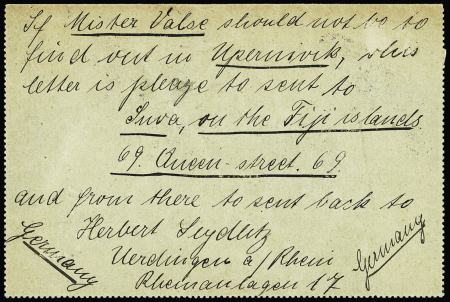 If Mister Valse should not be to
find out in Upernivik, this
letter is please to sent to
Suva, on the Fiji islands
69. Queen-street. 69
and from there to sent back to
Herbert Seydlitz
Germany Uerdingen a/Rhein Germany
Rheinanlagen 17